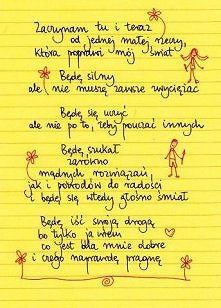 Zaczynam tu i teraz
od jednej małej rzeczy,
która poprawi mój świat
Będę silny
ale nie muszę zawsze zwyciężać
Będę się uczyć
ale nie po to, żeby pouczać innych
Będę szukał
zarówno
mądrych rozwiązań,
jak i powodów do radości
i będę się wtedy głośno śmiał
Będę iść swoją drogą
bo tylko ja wiem
co jest dla mnie dobre
i czego naprawdę pragnę